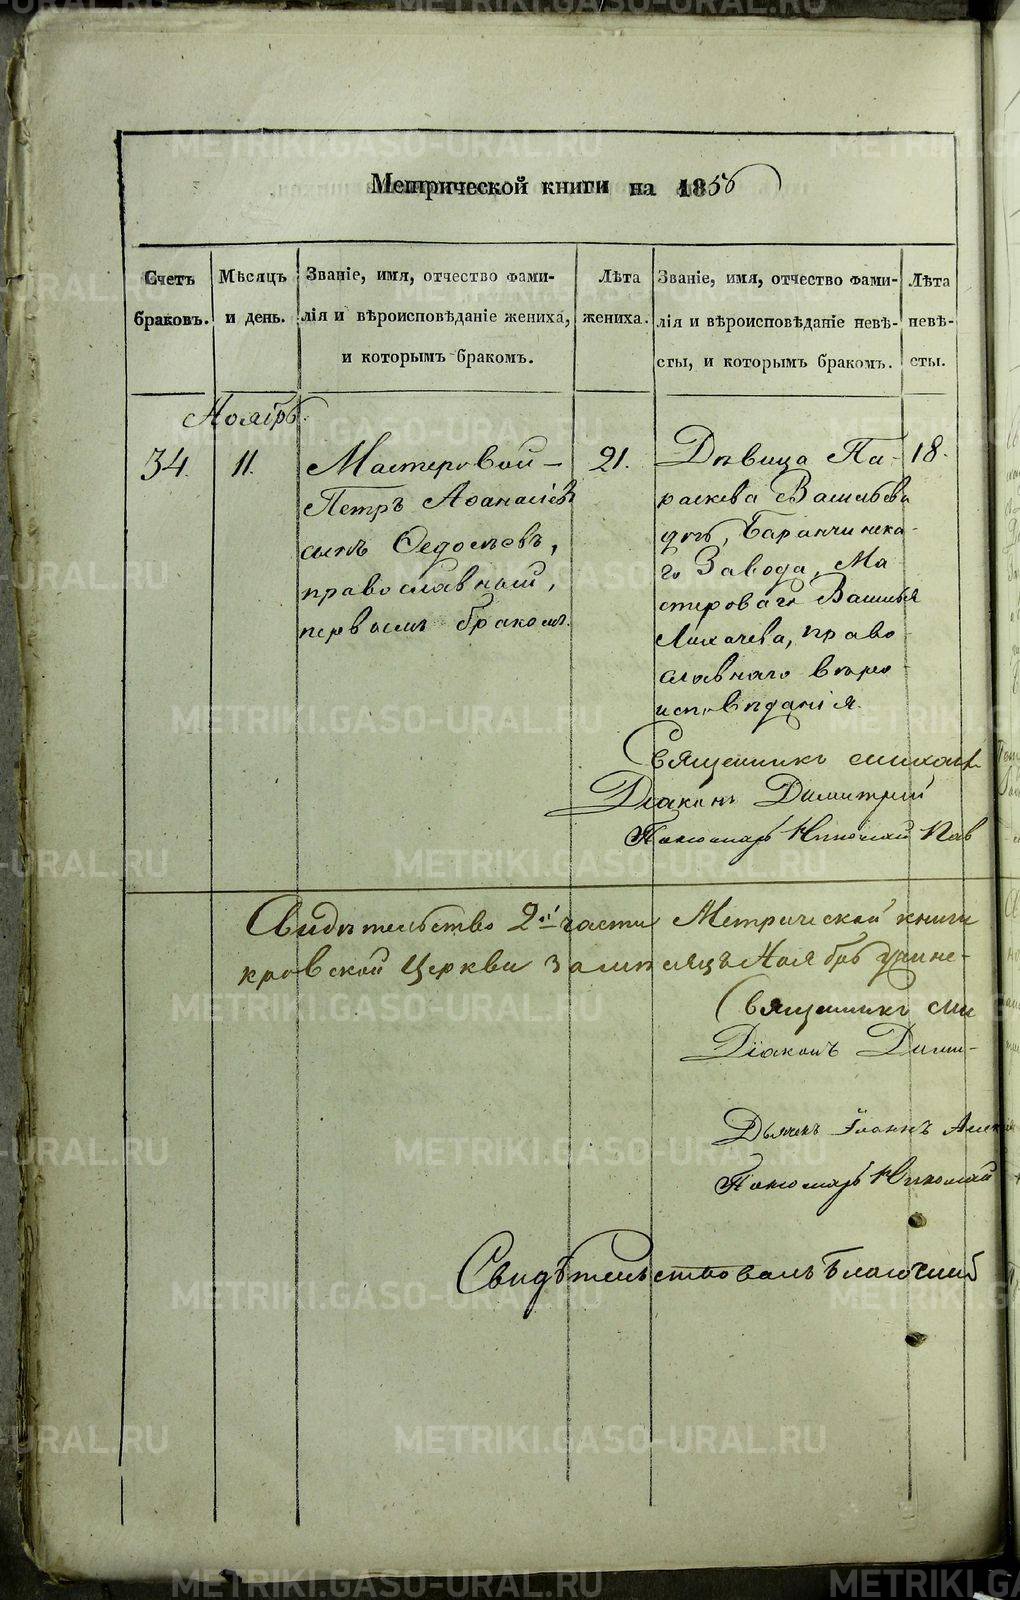 Метрической книги на 1856
Счетъ браковъ.
Мѣсяцъ и день.
Званіе, имя, отчество фами-
лія и вѣроисповѣданіе жениха,
и которымъ бракомъ.
Лѣта жениха.
Званіе, имя, отчество фами-
лія и вѣроисповѣданіе невѣ-
сты, и которымъ бракомъ.
Лѣта невѣ-
сты.
Ноябрь.
34.
11.
Мастеровой
Петръ Афанасіевъ
сынъ Федосѣевъ,
православный,
первымъ бракомъ.
21.
Дѣвица Па-
раскева Васильева
дочь, Баранчинска-
го Завода, Ма
стероваго Василья
Лихачева, право
славнаго вѣро
исповѣданія.
18.
Священникъ Михаи
Діаконъ Димитрій
Пономарь Николай Пав
Свидѣтельство 2й части Метрической книги
кровской Церкви за мѣсяцъ Ноябрь учине-
Священникъ Ми
Діаконъ Дими-
Дьячекъ Іоаннъ Алек
Пономарь Николай
Свидѣтельствовалъ Благочин
METRIKI.GASO-URAL.RU